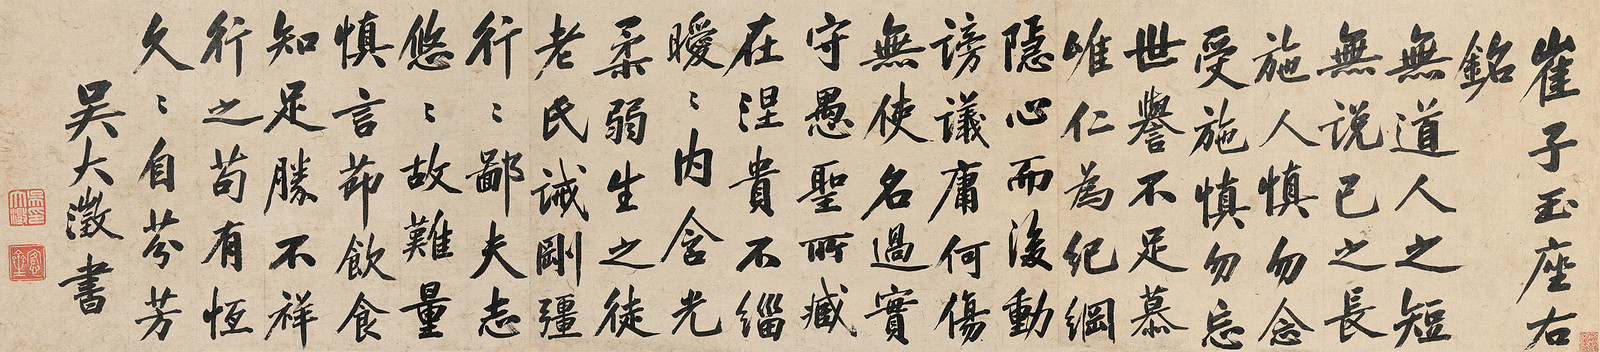 崔子玉座右
銘
無道人之短
無説己之長
施人慎勿念
受施慎勿忘
世譽不足慕
唯仁為紀綱
隱心而後動
謗議庸何傷
無使名過實
守愚聖所臧
在涅貴不緇
曖〻内含光
柔弱生之徒
老氏誡剛彊
行〻鄙夫志
悠〻故難量
慎言節飲食
知足勝不祥
行之苟有恆
久〻自芬芳
吳大澂書